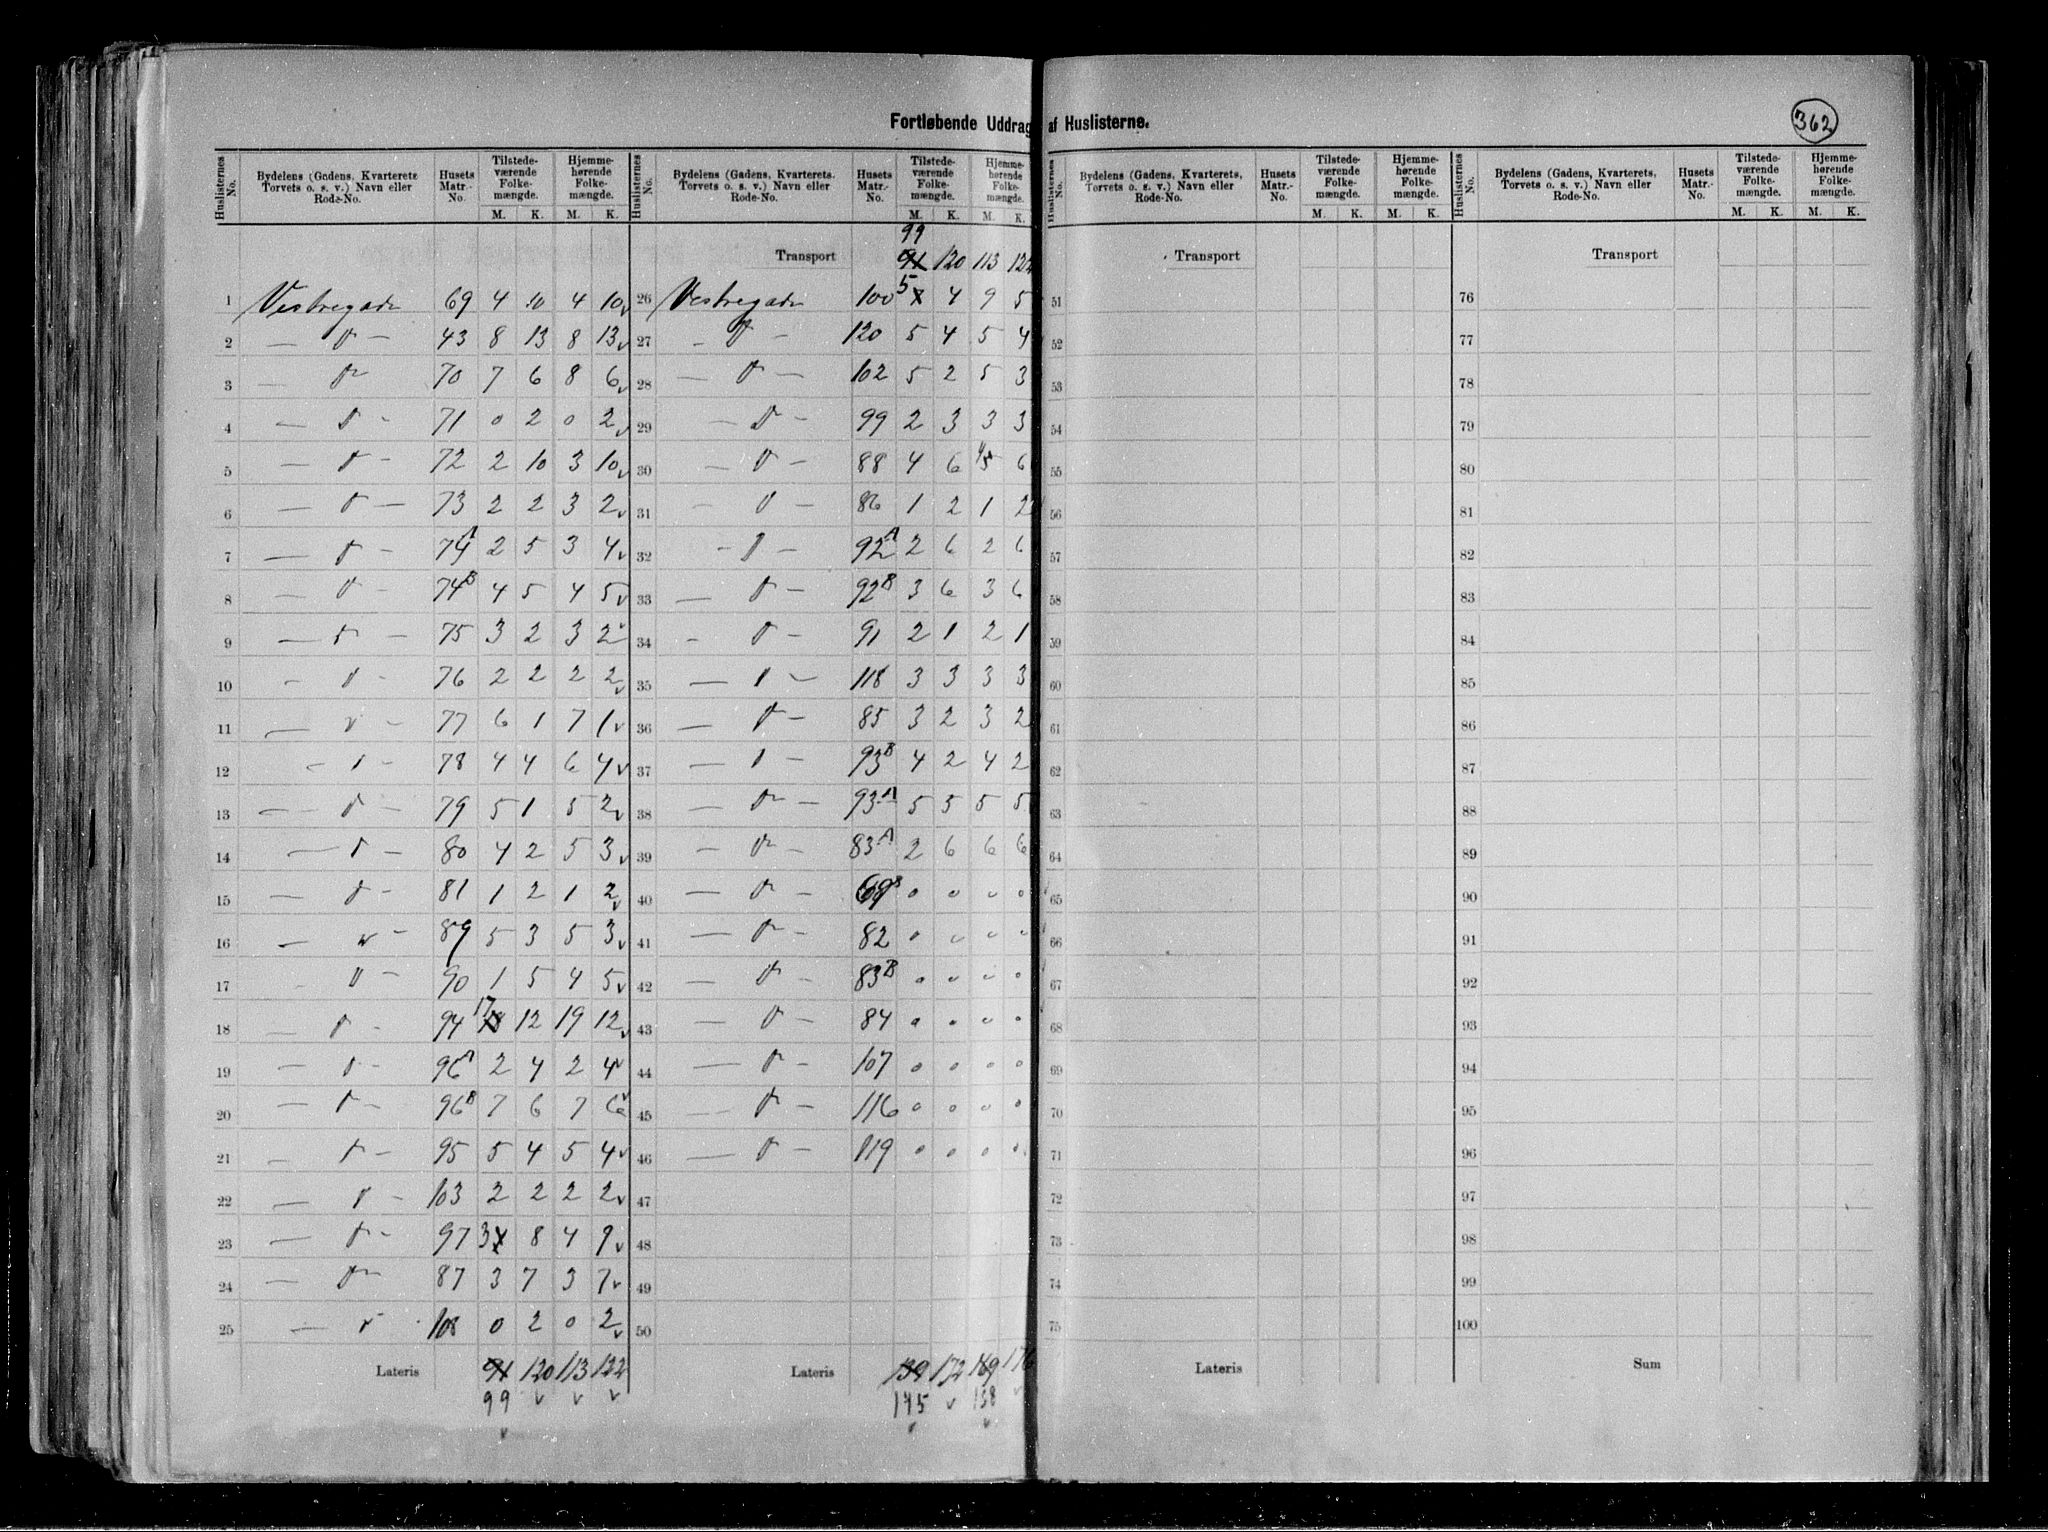 Fortløbende Uddrag af Huslisterne.
362
Huslisternes No. Bydelens (Gadens, Kvarterets, Torvets o. s. v.) Navn eller Rode-No. Husets Matr.-No. Tilstedeværende Folkemængde. M. K. Hjemmehørende Folkemængde. M. K.
1 Vestregade 69 4 10 4 10
2 — d — 43 8 13 8 13
3 — d 70 7 6 8 6
4 — d - 71 0 2 0 2
5 — d - 72 2 10 3 10
6 — d — 73 2 2 3 2
7 — d - 74A 2 5 3 4
8 — d - 74B 4 5 4 5
9 — d — 75 3 2 3 2
10 - d - 76 2 2 2 2
11 — d - 77 6 1 7 1
12 - d - 78 4 4 6 4
13 — d - 79 5 1 5 2
14 — d - 80 4 2 5 3
15 — d - 81 1 2 1 2
16 — d - 89 5 3 5 3
17 - d - 90 1 5 4 5
18 — d - 94 17 18 12 19 12
19 — d - 96A 2 4 2 4
20 — d - 96B 7 6 7 6
21 — d - 95 5 4 5 4
22 — d - 103 2 2 2 2
23 — d - 97 3 4 8 4 9
24 — d 87 3 7 3 7
25 — d 108 0 2 0 2
Lateris 91 120 113 122
99
Huslisternes No. Bydelens (Gadens, Kvarterets, Torvets o. s. v.) Navn eller Rode-No. Husets Matr.-No. Tilstedeværende Folkemængde. M. K. Hjemmehørende Folkemængde. M. K.
99
Transport 91 120 113 122
26 Vestregade 100 5 4 9 5
27 - d - 120 5 4 5 4
28 — d — 102 5 2 5 3
29 — d - 99 2 3 3 3
30 — d - 88 4 6 4 5 6
31 - d - 86 1 2 1 2
32 - d - 92A 2 6 2 6
33 — d - 92B 3 6 3 6
34 - d - 91 2 1 2 1
35 — d - 118 3 3 3 3
36 — d - 85 3 2 3 2
37 — d - 93B 4 2 4 2
38 — d - 93A 5 5 5 5
39 — d - 83A 2 6 6 6
40 — d - 69B 0 0 0 0
41 — d - 82 0 0 0 0
42 — d - 83B 0 0 0 0
43 — d - 84 0 0 0 0
44 — d - 107 0 0 0 0
45 — d - 116 0 0 0 0
46 — d - 119 0 0 0 0
47
48
49
50
Lateris 139 172 169 176
145 158
Huslisternes No. Bydelens (Gadens, Kvarterets, Torvets o. s. v.) Navn eller Rode-No. Husets Matr.-No. Tilstedeværende Folkemængde. M. K. Hjemmehørende Folkemængde. M. K.
Transport
51
52
53
54
55
56
57
58
59
60
61
62
63
64
65
66
67
68
69
70
71
72
73
74
75
Lateris
Huslisternes No. Bydelens (Gadens, Kvarterets, Torvets o. s. v.) Navn eller Rode-No. Husets Matr.-No. Tilstedeværende Folkemængde. M. K. Hjemmehørende Folkemængde. M. K.
Transport
76
77
78
79
80
81
82
83
84
85
86
87
88
89
90
91
92
93
94
95
96
97
98
99
100
Sum